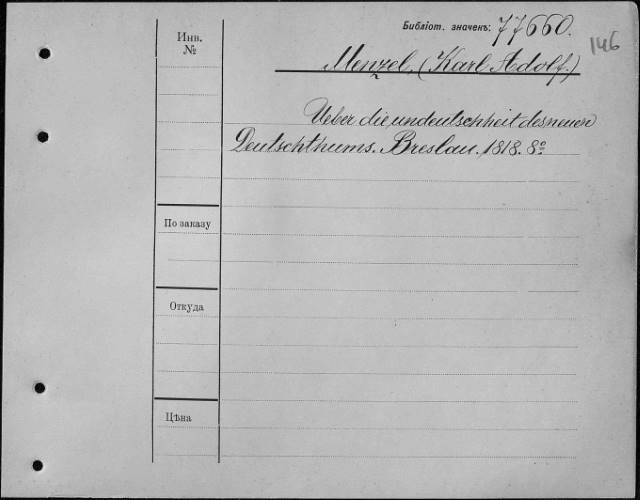 Библіот. значекъ: 77660.
146
Инв.
№
Menzel, (Karl Adolf.)
Ueber die undeutschheit des neuen
Deutschthums. Breslau. 1818. 8º
По заказу
Откуда
Цѣна